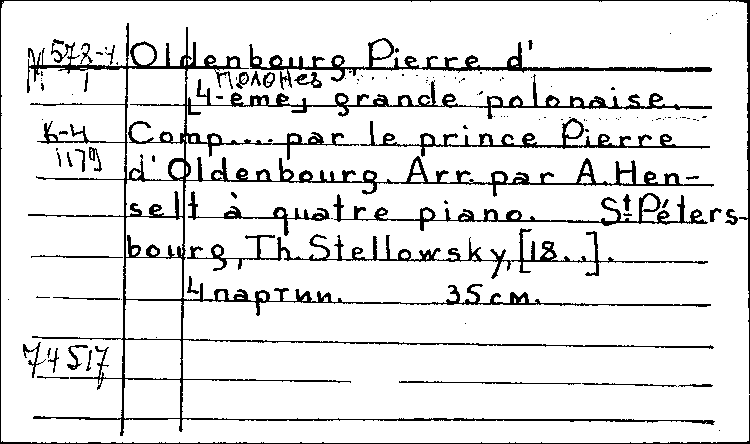 М 578-4 Oldenbourg, Pierre d'
полонез
[4-eme] grande polonaise.
К-4 Comp.... par le prince Pierre
1179 d'Oldenbourg. Arr. par A. Hen-
selt à quatre piano. St. Péters-
bourg, Th. Stellowsky, [18..].
4 партии. 35 см.
74517